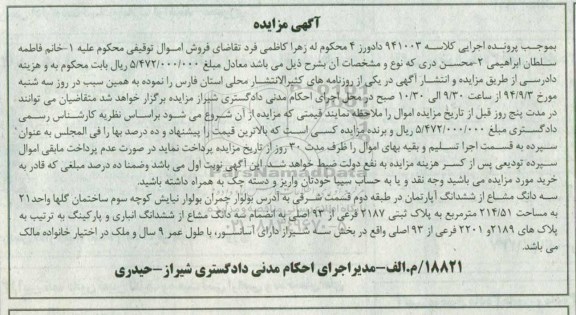 آگهی مزایده
بموجب پرونده اجرایی کلاسه ۹۴۱۰۰۳ دادورز ۴ محکوم له زهرا کاظمی فرد تقاضای فروش اموال توقیفی محکوم علیه ۱-خانم فاطمه
سلطان ابراهیمی ۲-محسن دری که نوع و مشخصات آن بشرح ذیل می باشد معادل مبلغ ۵/۴۷۲/۰۰۰/۰۰۰ ریال بابت محکوم به و هزینه
دادرسی از طریق مزایده و انتشار آگهی در یکی از روزنامه های کثیرالانتشار محلی استان فارس را نموده به همین سبب در روز سه شنبه
مورخ ۹۴/۹/۳ از ساعت ۹/۳۰ الی ۱۰/۳۰ صبح در محل اجرای احکام مدنی دادگستری شیراز مزایده برگزار خواهد شد متقاضیان می توانند
در مدت پنج روز قبل از تاریخ مزایده اموال را ملاحظه نمایند قیمتی که مزایده از آن شروع می شود براساس نظریه کارشناس رسمی
دادگستری مبلغ ۵/۴۷۲/۰۰۰/۰۰۰ ریال و برنده مزایده کسی است که بالاترین قیمت را پیشنهاد و ده درصد بها را فی المجلس به عنوان
سپرده به قسمت اجرا تسلیم و بقیه بهای اموال را ظرف مدت ۳۰ روز از تاریخ مزایده پرداخت نماید در صورت عدم پرداخت مابقی اموال
سپرده تودیعی پس از کسر هزینه مزایده به نفع دولت ضبط خواهد شد. این آگهی نوبت اول می باشد وضمنا ده درصد مبلغی که قادر به
خرید مورد مزایده می باشید وجه نقد و یا به حساب سیبا خودتان واریز و دسته چک به همراه داشته باشید.
سه دانگ مشاع از ششدانگ آپارتمان در طبقه دوم قسمت شرقی به آدرس بولوار چمران بولوار نیایش کوچه سوم ساختمان گلها واحد۲۱
به مساحت ۲۱۴/۵۱ مترمربع به پلاک ثبتی ۲۱۸۷ فرعی از ۹۳ اصلی به انضمام سه دانگ مشاع از ششدانگ انباری و پارکینگ به ترتیب به
پلاک های ۲۱۸۹و ۲۲۰۱ فرعی از ۹۳ اصلی واقع در بخش سه شیراز دارای آسانسور، با طول عمر ۹ سال و ملک در اختیار خانواده مالک
می باشد.
۱۸۸۲۱/م.الف-مدیراجرای احکام مدنی دادگستری شیراز-حیدری
ParsNamadData